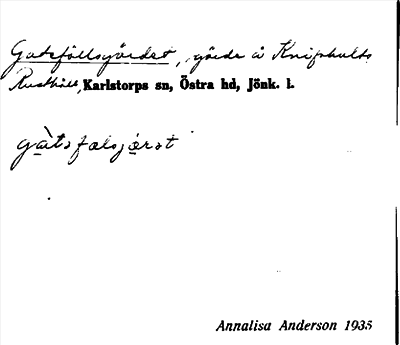 Gatsfällsgärdet, gärde å Knifshults
Rusthåll, Karlstorps sn, Östra hd, Jönk. l.
gàtsfalsjærat
Annalisa Anderson 1935